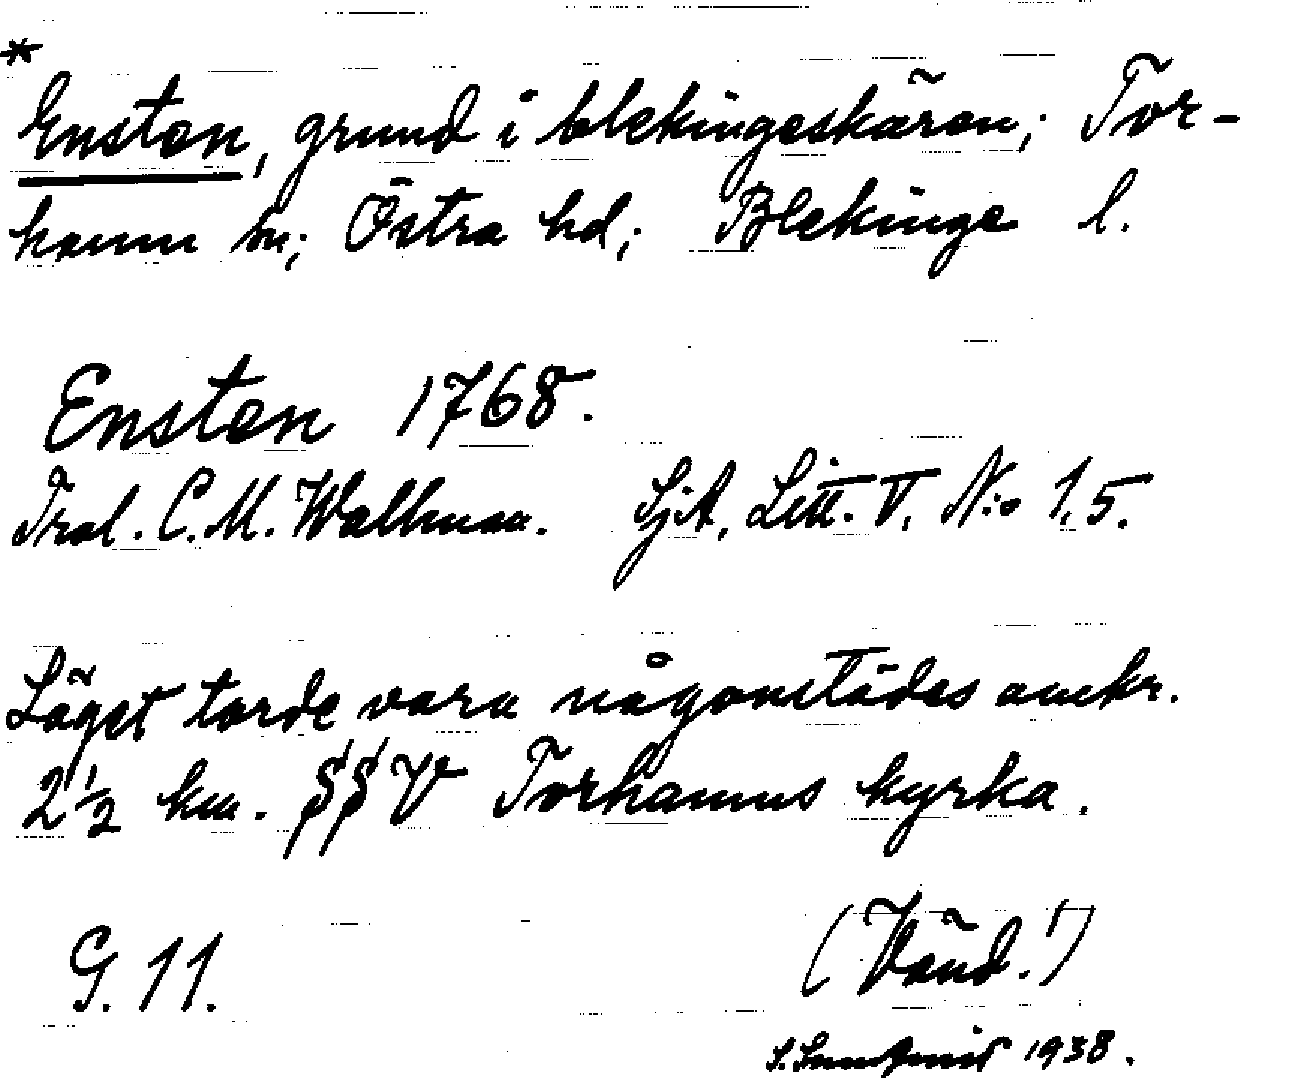 *
Ensten, grund i blekingeskären; Tor-
hamn sn; Östra hd; Blekinge l.
Ensten 1768.
Tral. C. M. Wallman. SjA, Litt. V, N:o 1,5.
Läget torde vara någonstädes omkr.
2 1/2 km. SSV Torhamns kyrka.
G. 11.
(Vänd!)
1938.